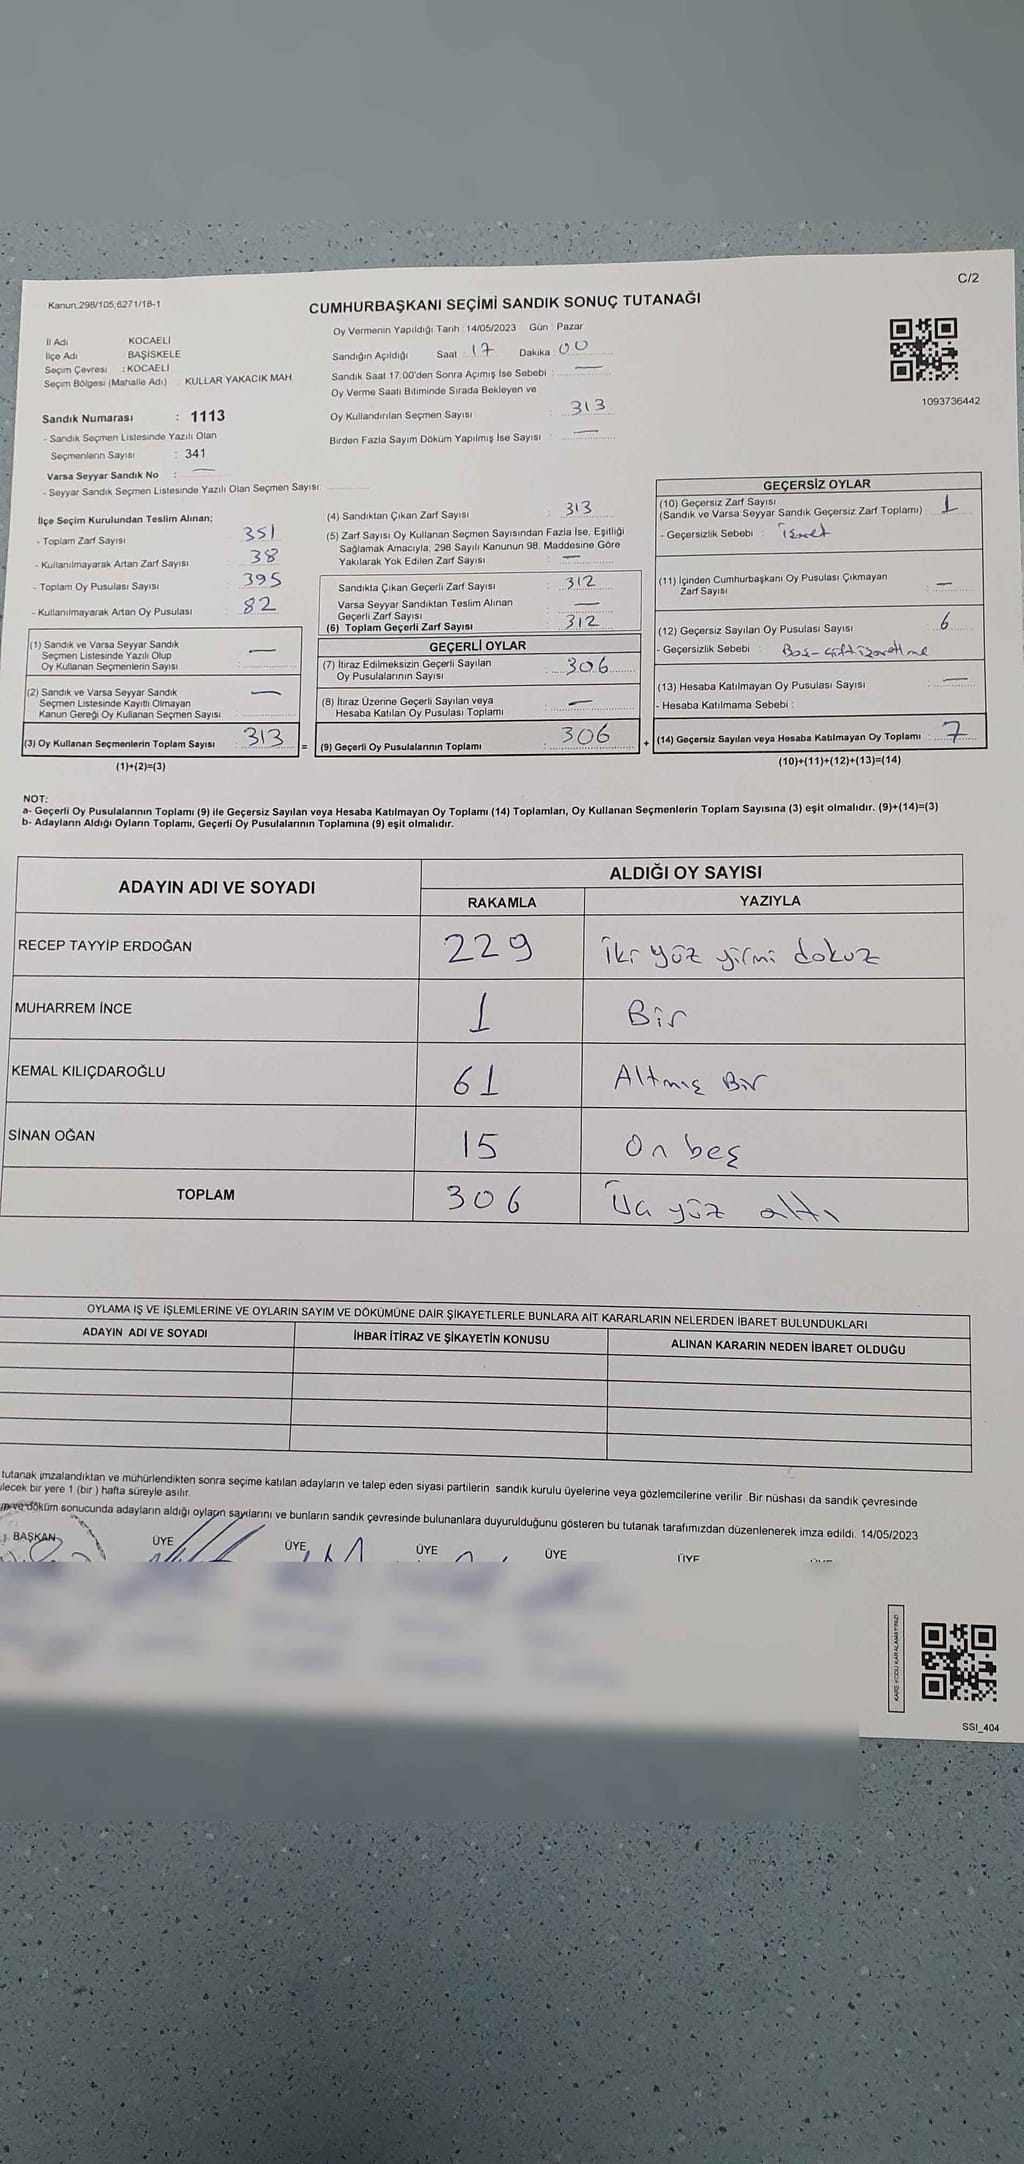 C/2
Kanun:298/105,6271/18-1
CUMHURBAŞKANI SEÇİMİ SANDIK SONUÇ TUTANAĞI
İl Adı KOCAELİ
İlçe Adı BAŞİSKELE
Seçim Çevresi : KOCAELİ
Seçim Bölgesi (Mahalle Adı) : KULLAR YAKACIK MAH.
Sandık Numarası : 1113
- Sandık Seçmen Listesinde Yazılı Olan
Seçmenlerin Sayısı : 341
Varsa Seyyar Sandık No : —
- Seyyar Sandık Seçmen Listesinde Yazılı Olan Seçmen Sayısı:
Oy Vermenin Yapıldığı Tarih : 14/05/2023 Gün : Pazar
Sandığın Açıldığı Saat : 17 Dakika : 00
Sandık Saat 17:00'den Sonra Açımış İse Sebebi : —
Oy Verme Saati Bitiminde Sırada Bekleyen ve
Oy Kullandırılan Seçmen Sayısı : 313
Birden Fazla Sayım Döküm Yapılmış İse Sayısı : —
1093736442
İlçe Seçim Kurulundan Teslim Alınan;
- Toplam Zarf Sayısı : 351
- Kullanılmayarak Artan Zarf Sayısı : 38
- Toplam Oy Pusulası Sayısı : 395
- Kullanılmayarak Artan Oy Pusulası : 82
(1) Sandık ve Varsa Seyyar Sandık
Seçmen Listesinde Yazılı Olup
Oy Kullanan Seçmenlerin Sayısı : —
(2) Sandık ve Varsa Seyyar Sandık
Seçmen Listesinde Kayıtlı Olmayan
Kanun Gereği Oy Kullanan Seçmen Sayısı : —
(3) Oy Kullanan Seçmenlerin Toplam Sayısı : 313 =
(1)+(2)=(3)
(4) Sandıktan Çıkan Zarf Sayısı : 313
(5) Zarf Sayısı Oy Kullanan Seçmen Sayısından Fazla İse, Eşitliği
Sağlamak Amacıyla; 298 Sayılı Kanunun 98. Maddesine Göre
Yakılarak Yok Edilen Zarf Sayısı : —
Sandıkta Çıkan Geçerli Zarf Sayısı : 312
Varsa Seyyar Sandıktan Teslim Alınan
Geçerli Zarf Sayısı : —
(6) Toplam Geçerli Zarf Sayısı : 312
GEÇERLİ OYLAR
(7) İtiraz Edilmeksizin Geçerli Sayılan
Oy Pusulalarının Sayısı : 306
(8) İtiraz Üzerine Geçerli Sayılan veya
Hesaba Katılan Oy Pusulası Toplamı : —
(9) Geçerli Oy Pusulalarının Toplamı : 306 +
GEÇERSİZ OYLAR
(10) Geçersiz Zarf Sayısı
(Sandık ve Varsa Seyyar Sandık Geçersiz Zarf Toplamı) : 1
- Geçersizlik Sebebi : işaret
(11) İçinden Cumhurbaşkanı Oy Pusulası Çıkmayan
Zarf Sayısı : —
(12) Geçersiz Sayılan Oy Pusulası Sayısı : 6
- Geçersizlik Sebebi : Boş-çift işaretleme
(13) Hesaba Katılmayan Oy Pusulası Sayısı : —
- Hesaba Katılmama Sebebi :
(14) Geçersiz Sayılan veya Hesaba Katılmayan Oy Toplamı : 7
(10)+(11)+(12)+(13)=(14)
NOT:
a- Geçerli Oy Pusulalarının Toplamı (9) ile Geçersiz Sayılan veya Hesaba Katılmayan Oy Toplamı (14) Toplamları, Oy Kullanan Seçmenlerin Toplam Sayısına (3) eşit olmalıdır. (9)+(14)=(3)
b- Adayların Aldığı Oyların Toplamı, Geçerli Oy Pusulalarının Toplamına (9) eşit olmalıdır.
ADAYIN ADI VE SOYADI ALDIĞI OY SAYISI
RAKAMLA YAZIYLA
RECEP TAYYİP ERDOĞAN 229 iki yüz yirmi dokuz
MUHARREM İNCE 1 Bir
KEMAL KILIÇDAROĞLU 61 Altmış Bir
SİNAN OĞAN 15 On beş
TOPLAM 306 Üç yüz altı
OYLAMA İŞ VE İŞLEMLERİNE VE OYLARIN SAYIM VE DÖKÜMÜNE DAİR ŞİKAYETLERLE BUNLARA AİT KARARLARIN NELERDEN İBARET BULUNDUKLARI
ADAYIN ADI VE SOYADI İHBAR İTİRAZ VE ŞİKAYETİN KONUSU ALINAN KARARIN NEDEN İBARET OLDUĞU
tutanak imzalandıktan ve mühürlendikten sonra seçime katılan adayların ve talep eden siyasi partilerin sandık kurulu üyelerine veya gözlemcilerine verilir .Bir nüshası da sandık çevresinde
bir yere 1 (bir ) hafta süreyle asılır.
ve döküm sonucunda adayların aldığı oyların sayılarını ve bunların sandık çevresinde bulunanlara duyurulduğunu gösteren bu tutanak tarafımızdan düzenlenerek imza edildi. 14/05/2023
BAŞKAN ÜYE ÜYE ÜYE ÜYE ÜYE
KARE KODU KARALAMAYINIZ!
SSI_404